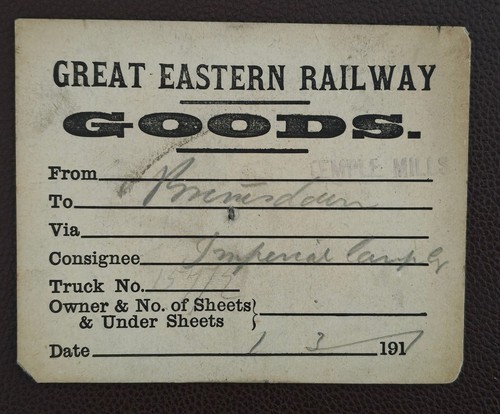 GREAT EASTERN RAILWAY
GOODS.
From TEMPLE MILLS
To Brimsdown
Via
Consignee Imperial Lamp Co
Truck No.
Owner & No. of Sheets
& Under Sheets
Date 1 3 191